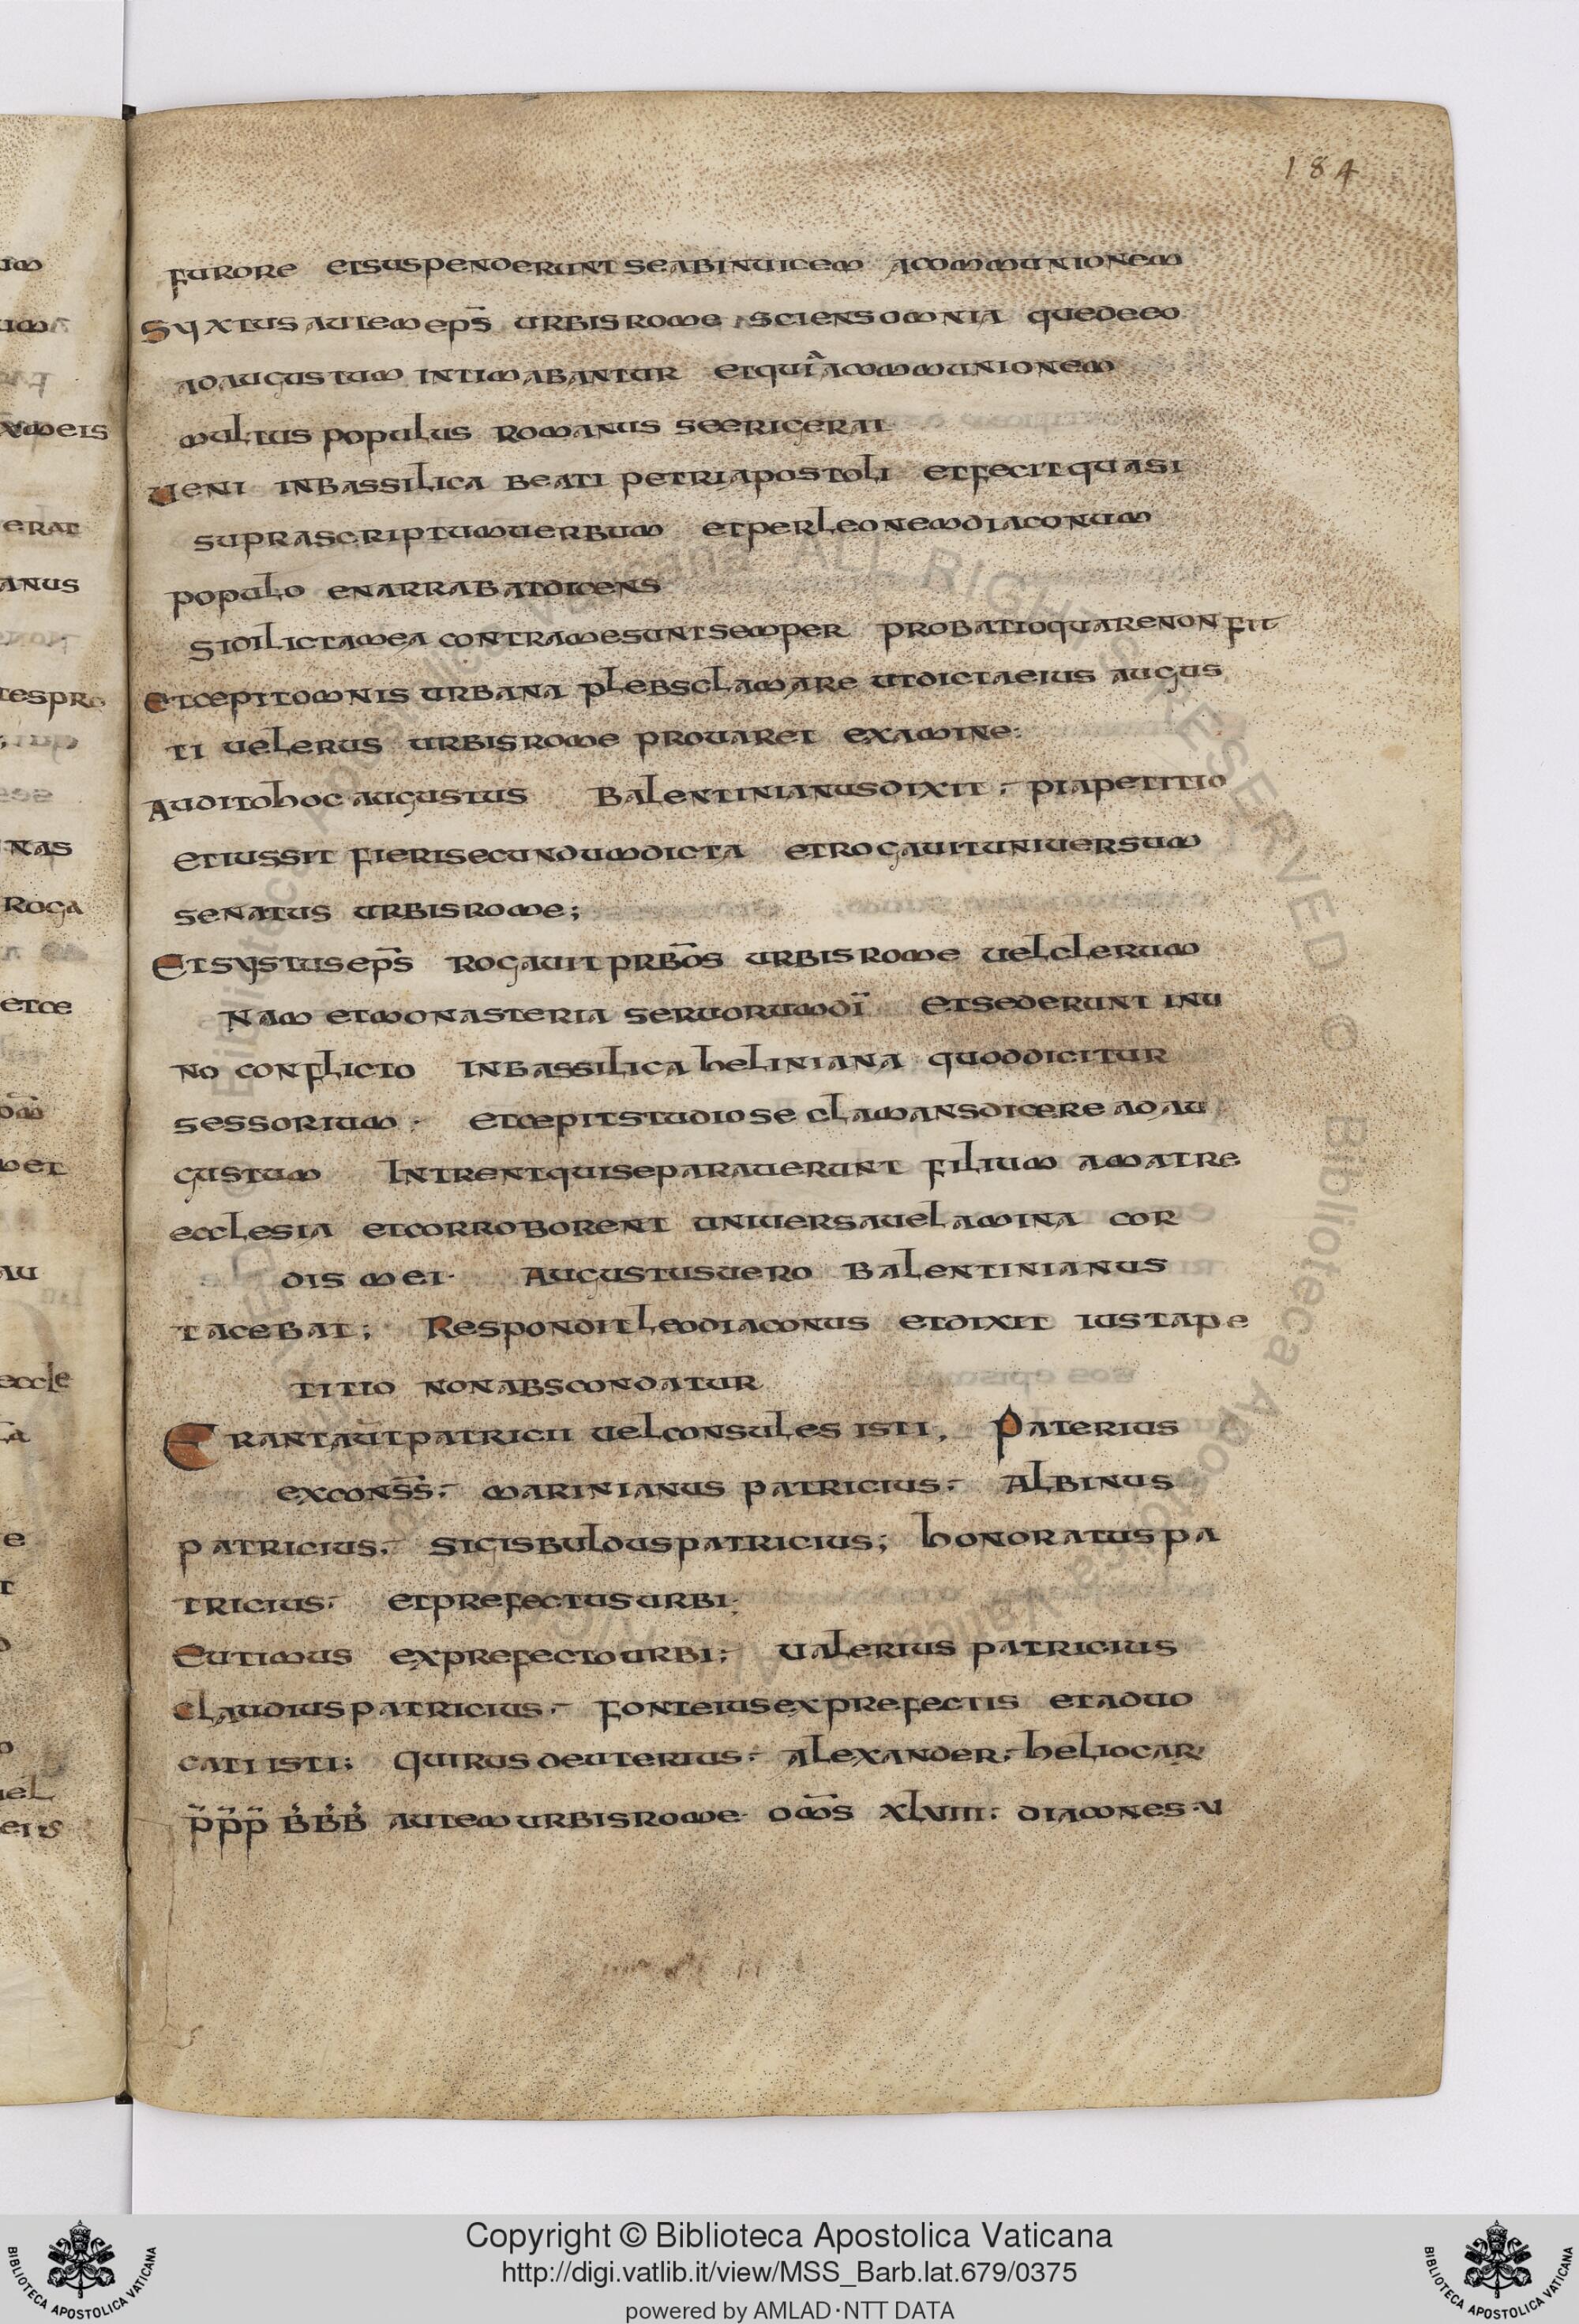 184
furore et suspenderunt se ab inuicem a communionem
Syxtus autem ep̅s̅ urbis rome sciens omnia que de eo
ad augustum intimabantur et qui a communionem
multus populus romanus se erigerat
ueni in bassilica beati petri apostoli et fecit quasi
suprascriptum uerbum et per leonem diaconum
populo enarrabat dicens
si dilicta mea contra me sunt semper probatio quare non fit
et cœpit omnis urbana plebs clamare ut dicta eius augus
ti uel erus urbis rome prouaret examine:
Audito hoc augustus Balentinianus dixit . pia petitio
et iussit fieri secundum dicta et rogauit uniuersum
senatus urbis rome;
Et systus ep̅s̅ rogauit prb̅o̅s urbis rome uel clerum
Nam et monasteria seruorum d̅i̅ et sederunt in u
no conflicto in bassilica heliniana quod dicitur
sessorium . et cœpit studiose clamans dicere ad au
gustum Intrent qui separauerunt filium a matre
ecclesia et corroborent uniuersa uelamina cor
dis mei . Augustus uero Balentinianus
tacebat; Respondit leo diaconus et dixit iusta pe
titio non abscondatur
Erant aut̅ patricii uel consules isti, Paterius
excons̅s̅. marinianus patricius. Albinus
patricius. sigisbuldus patricius; honoratus pa
tricius. et prefectus urbi.
Eutimus ex prefecto urbi; ualerius patricius
Claudius patricius. fonteius ex prefectis et aduo
cati isti; quirus deuterius. alexander. heliocar
p̅p̅p̅ b̅b̅b̅ autem urbis rome. om̅s xlviii. diacones . u
Copyright © Biblioteca Apostolica Vaticana
http://digi.vatlib.it/view/MSS_Barb.lat.679/0375
powered by AMLAD·NTT DATA